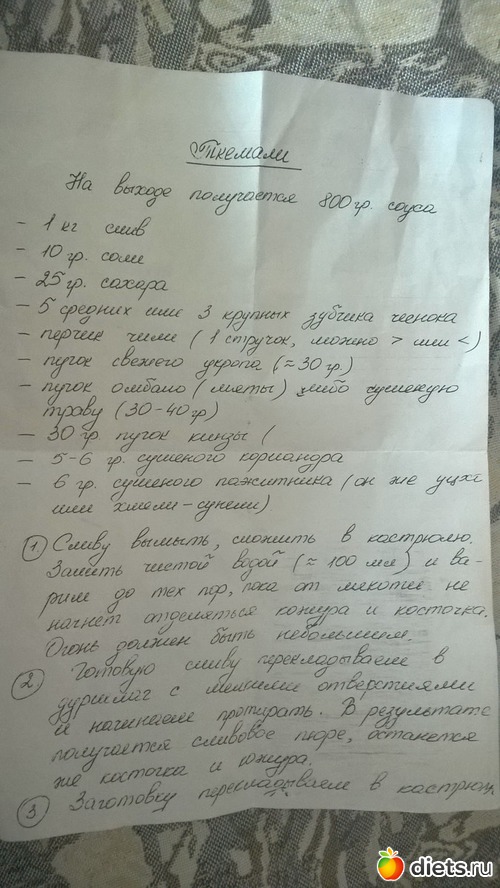 Ткемали
На выходе получается 800 гр. соуса
- 1 кг слив
- 10 гр. соли
- 25 гр. сахара
- 5 средних или 3 крупных зубчика чеснока
- перчик чили (1 стручок, можно > или <)
- пучок свежего укропа (≈ 30 гр.)
- пучок омбало (мяты) либо сушеную
траву (30-40 гр)
- 30 гр. пучок кинзы (
- 5-6 гр. сушеного кориандра
- 6 гр. сушеного пажитника (он же уцхо
или хмели-сунели)
1. Сливу вымыть, сложить в кастрюлю.
Залить чистой водой (≈ 100 мл) и ва-
рим до тех пор, пока от мякоти не
начнет отделяться кожура и косточка.
Огонь должен быть небольшим.
2. Готовую сливу перекладываем в
дуршлаг с мелкими отверстиями
и начинаем протирать. В результате
получается сливовое пюре, останется
же косточка и кожура.
3 Заготовку перекладываем в кастрюлю
diets.ru